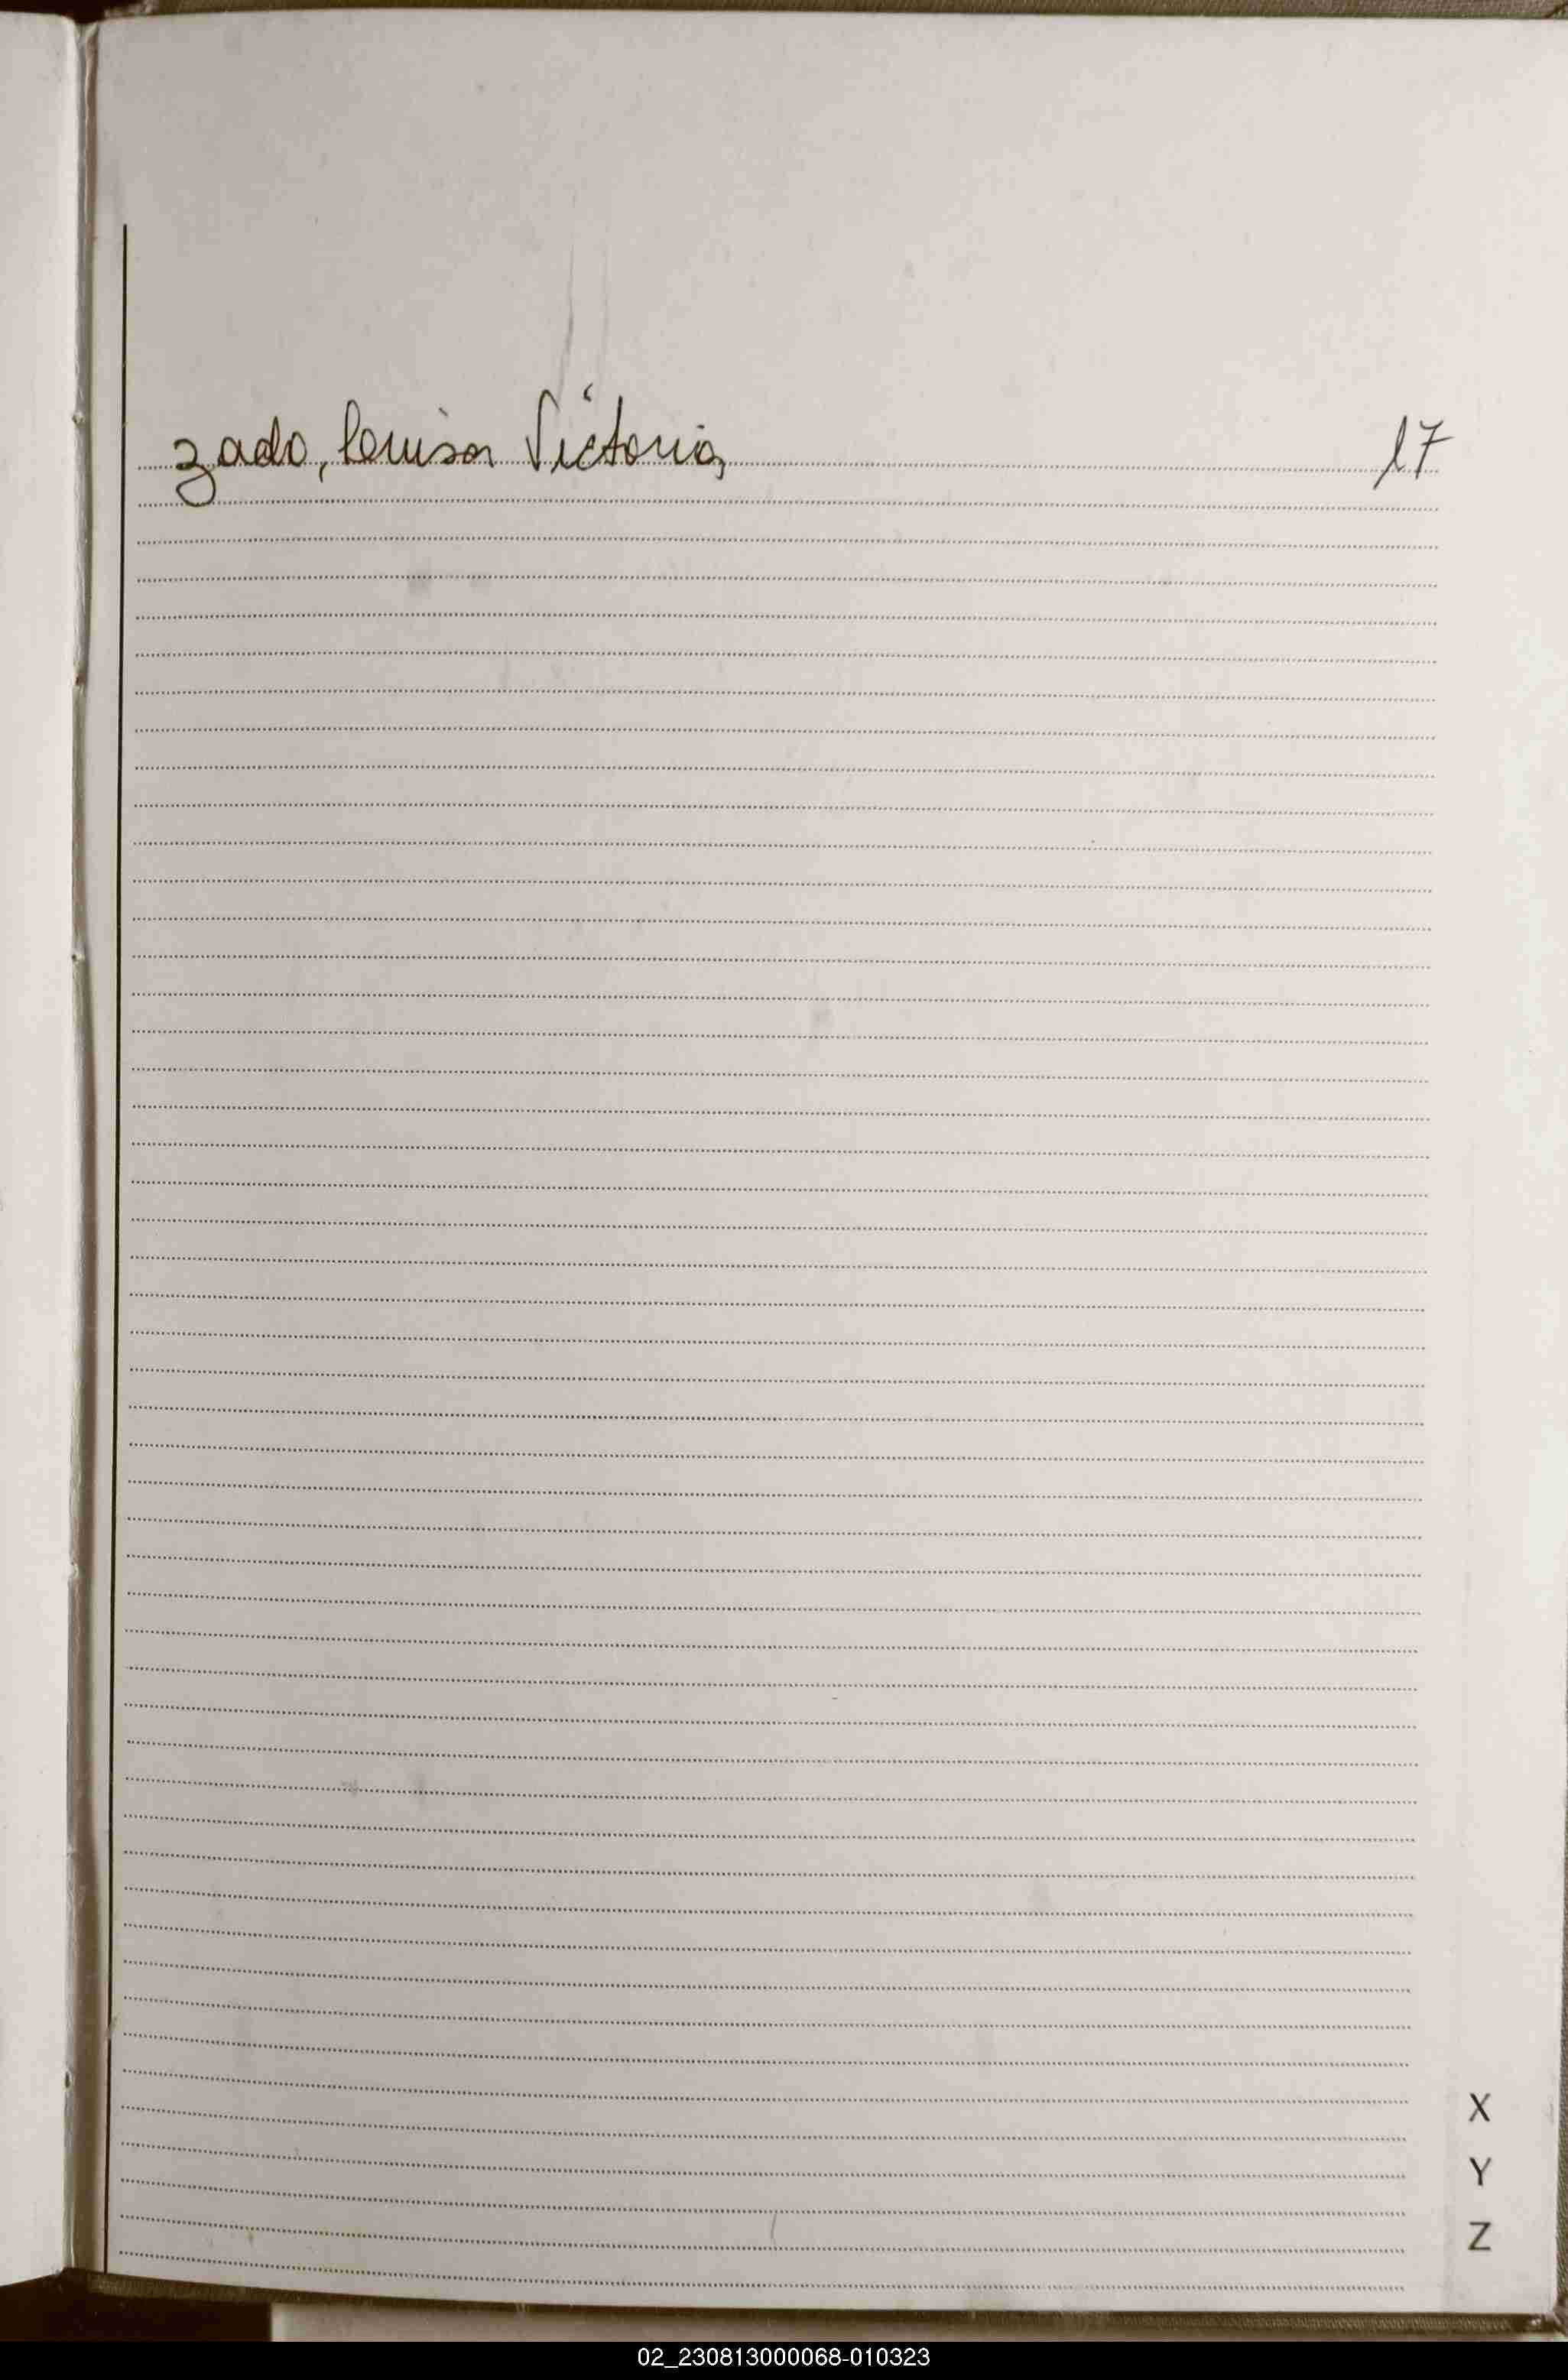 Zado, Louisa Victoria 17
X
Y
Z
02_230813000068-010323